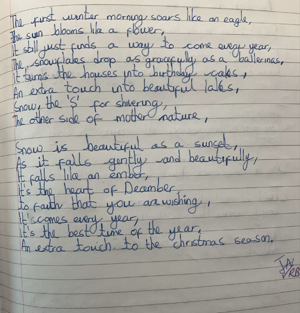 The first winter morning soars like an eagle,
The sun blooms like a flower,
It still just finds a way to come every year,
The snowflakes drop as gracefully as a ballerinas,
It turns the houses into birthday cakes,
An extra touch into beautiful lakes,
Snow, the 'S' for shivering,
The other side of mother nature,
Snow is beautiful as a sunset,
As it falls gently and beautifully,
It falls like an ember,
It's the heart of December,
To faith that you are wishing,
It comes every year,
It's the best time of the year,
An extra touch to the christmas season.